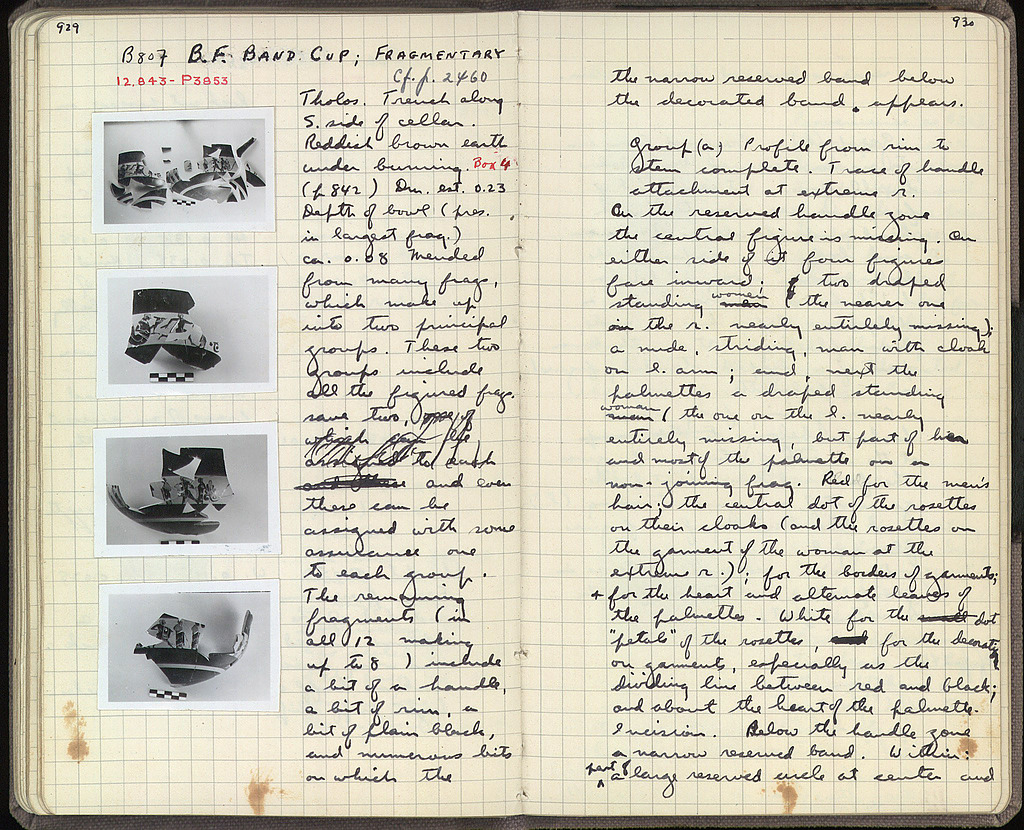 929
B807 B.F. BAND CUP; FRAGMENTARY
12.843- P3853
Cf. p. 2460
Tholos. Trench along
S. side of cellar.
Reddish brown earth
under burning. Box 4
(p 842) Dm. est. 0.23
Depth of bowl (pres.
in largest frag.)
ca. 0.08 Mended
from many frags,
which make up
into two principal
groups. These two
groups include
all the figured frags.
save two,
and even
these can be
assigned with some
assurance one
to each group.
The remaining
fragments (in
all 12 making
up to 8 ) include
a bit of a handle,
a bit of rim, a
bit of plain black,
and numerous bits
on which the
930
the narrow reserved band below
the decorated band appears.
Group (a) Profile from rim to
stem complete. Trace of handle
attachment at extreme r.
On the reserved handle zone
the central figure is missing. On
either side of it four figures
face inward; two draped
standing women (the nearer one
on the r. nearly entirely missing);
a nude, striding, man with cloak
on l. arm; and, next the
palmettes a draped standing
woman (the one on the l. nearly
entirely missing, but part of her
and most of the palmette on a
non-joining frag. Red for the men's
hair; the central dot of the rosettes
on their cloaks (and the rosettes on
the garment of the woman at the
extreme r.); for the borders of garments;
+ for the heart and alternate leaves of
the palmettes. White for the dot
"petals" of the rosettes, for the decorat
on garments, especially as the
dividing line between red and black;
and about the heart of the palmette.
Incision. Below the handle zone
a narrow reserved band. Within:
part of a large reserved circle at center and